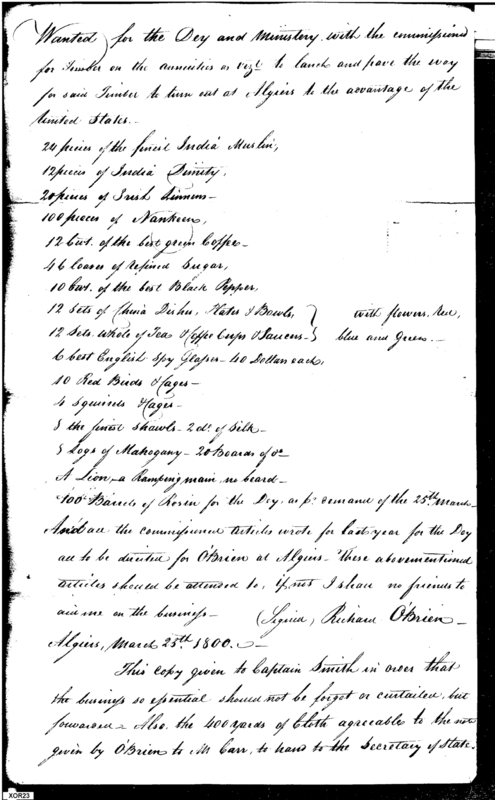 Wanted, for the Dey and Ministery, with the commissioned
for Timber on the annuities as regt. to land and pave the way
for said Timber to turn out at Algiers to the advantage of the
United States.—
24 pieces of the finest India Muslin,
12 pieces of India Dimity,
20 pieces of Irish Linnens—
100 pieces of Nankeen,
12 Cwt. of the best green Coffe—
46 loaves of refined Sugar,
10 Cwt. of the best Black Pepper,
12 Sets of China Dishes, Plates & Bowls, } with flowers Red,
12 Sets. whole of Tea & Coffe Cups & Saucers— } blue and Green.—
6 best English Spy Glasses— 40 Dollars each,
10 Red Birds & Cages—
4 Squirrels & Cages—
5 the finest Shawls— 2 do. of Silk—
5 Logs of Mahogany— 20 Boards of do—
A Lion,—a Ramping main, no beard—
100 Barrels of Rosin for the Dey, as pr. demand of the 25th. March—
And all the commissioned articles wrote for last year for the Dey
all to be directed for O'Brien at Algiers— these abovementioned
articles should be attended to, if not I shall no friends to
aid me on the business— (Signed, Richard O'Brien—
Algiers, March 25th. 1800.—
This copy given to Captain Smith in order that
the business so essential should not be forgot or curtailed, but
forwarded— Also, the 400 yards of Cloth agreeable to the note
given by O'Brien to Mr Carr, to hand to the Secretary of State.
XOR23